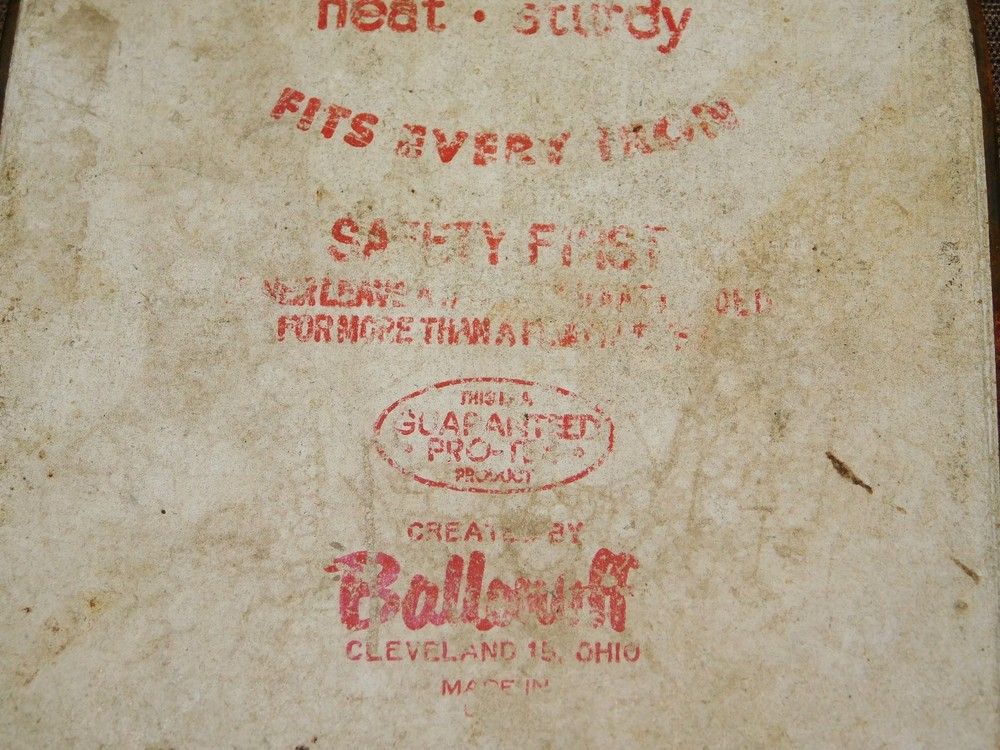 neat • sturdy
FITS EVERY IRON
SAFETY FIRST
NEVER LEAVE A
FOR MORE THAN A FEW
THIS IS A
GUARANTEED
PRO-TEX
PRODUCT
CREATED BY
Ballonoff
CLEVELAND 15, OHIO
MADE IN